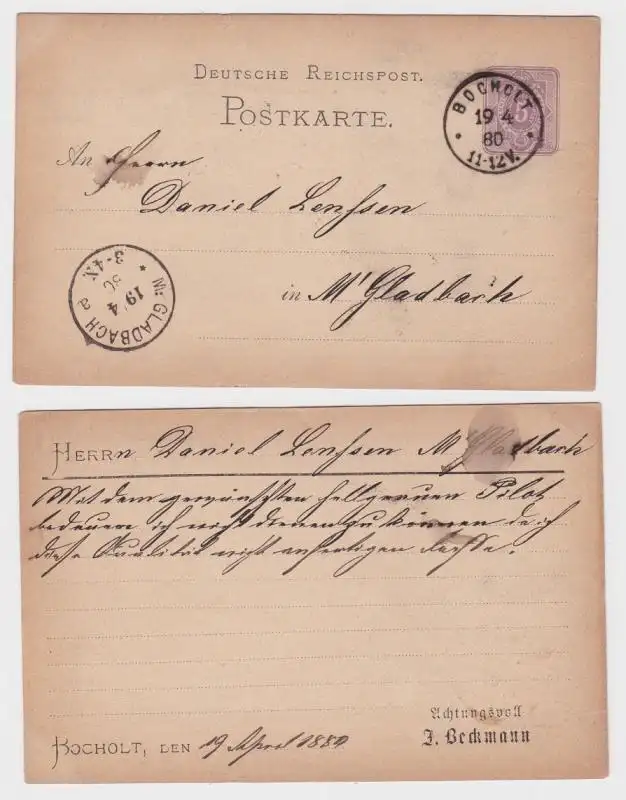 DEUTSCHE REICHSPOST.
POSTKARTE.
BOCHOLT
19 4
80
11-12V.
An Herrn
Daniel Lenssen
in M'Gladbach
M: GLADBACH a
19 4
80
3-4N.
HERRN Daniel Lenssen M'Gladbach
Mit dem gewünschten hellgrauen Pilot
bedauere ich nicht dienen zu können da ich
diese Qualität nicht anfertigen lasse.
BOCHOLT, DEN 19 April 1880
Achtungsvoll
J. Beckmann